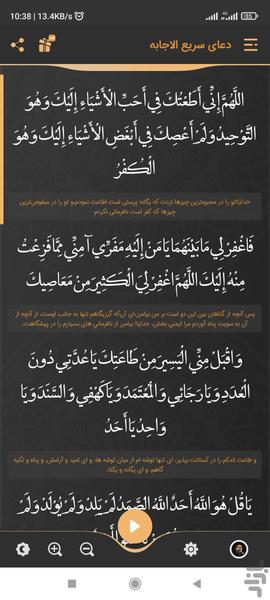 10:38 | 13.4KB/s
85
دعای سریع الاجابه
اللَّهُمَّ إِنِّي أَطَعْتُكَ فِي أَحَبِّ الْأَشْيَاءِ إِلَيْكَ وَهُوَ
التَّوْحِيدُ وَلَمْ أَعْصِكَ فِي أَبْغَضِ الْأَشْيَاءِ إِلَيْكَ وَهُوَ
الْكُفْرُ
خدایا!تو را در محبوبترین چیزها نزدت که یگانه پرستی است اطاعت نمودم،و تو را در مبغوض‌ترین
چیزها که کفر است نافرمانی نکردم
فَاغْفِرْ لِي مَا بَيْنَهُمَا يَا مَنْ إِلَيْهِ مَفَرِّي آمِنِّي مِمَّا فَزِعْتُ
مِنْهُ إِلَيْكَ اللَّهُمَّ اغْفِرْ لِيَ الْكَثِيرَ مِنْ مَعَاصِيكَ
پس آنچه از گناهان بین این دو است بر من بیامرز،ای آن‌که گریزگاهم تنها به جانب اوست، از آنچه از
آن به سویت پناه آوردم مرا ایمنی بخش، خدایا! بیامرز از نافرمانی های بسیارم را در پیشگاهت،
وَاقْبَلْ مِنِّي الْيَسِيرَ مِنْ طَاعَتِكَ يَا عُدَّتِي دُونَ
الْعُدَدِ وَيَا رَجَائِي وَالْمُعْتَمَدَ وَيَا كَهْفِي وَالسَّنَدَ وَيَا
وَاحِدُ يَا أَحَدُ
و طاعت اندکم را در آستانت بپذیر، ای تنها توشه ام از میان توشه ها، و ای امید و آرامش، و پناه و تکیه
گاهم، و ای یگانه و یکتا،
يَا قُلْ هُوَ اللَّهُ أَحَدٌ اللَّهُ الصَّمَدُ لَمْ يَلِدْ وَلَمْ يُولَدْ وَلَمْ